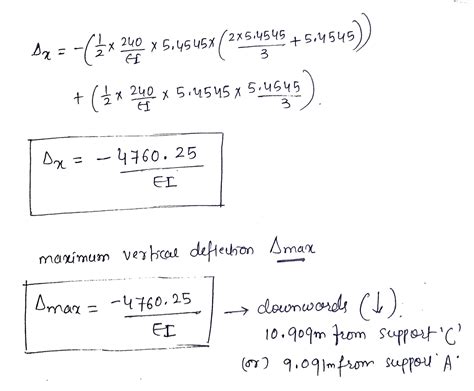 Δx = -(1/2 × 240/EI × 5.4545 × (2×5.4545/3 + 5.4545))
+ (1/2 × 240/EI × 5.4545 × 5.4545/3).
Δx = - 4760.25/EI
maximum vertical deflection Δmax
Δmax = -4760.25/EI → downwards (↓).
10.909m from support 'C'
(or) 9.091m from support 'A'